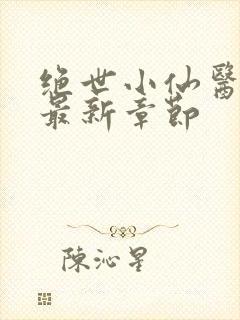 绝世小仙醫
最新章節
陳沁星